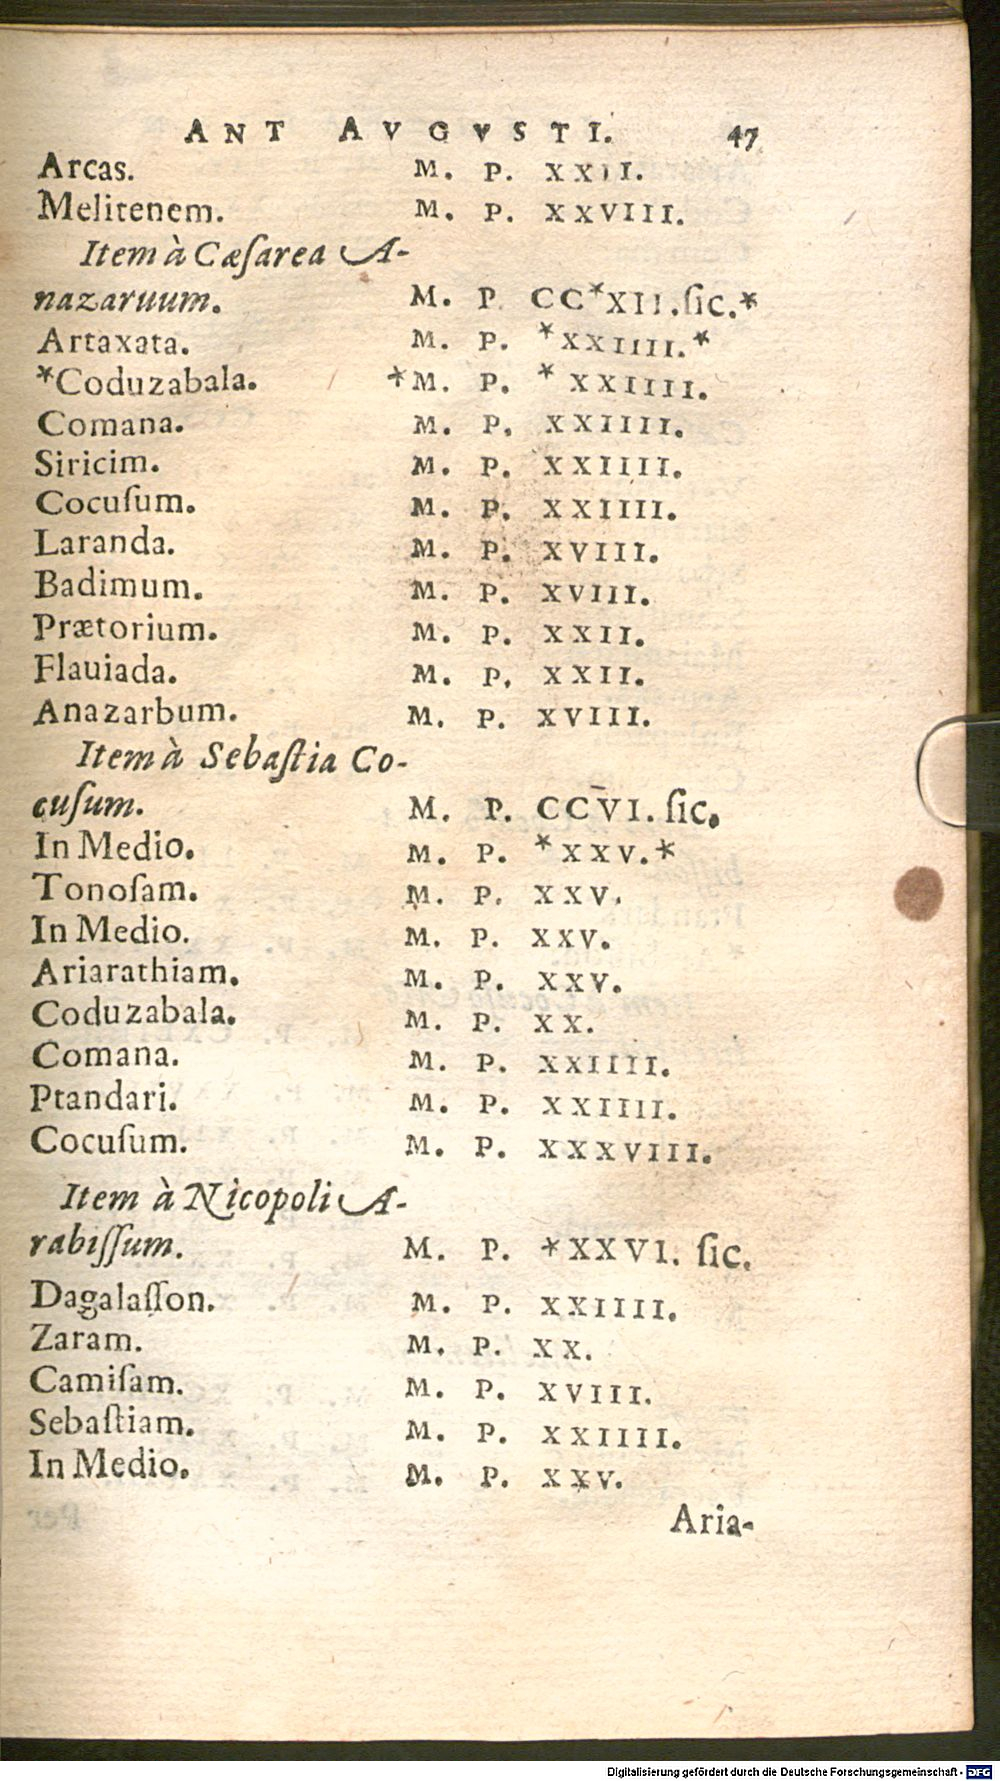 ANT AVGVSTI. 47
Arcas. M. P. XXII.
Melitenem. M. P. XXVIII.
Item à Cæſarea A-
nazaruum. M. P CC*XII.ſic.*
Artaxata. M. P. *XXIIII.*
*Coduzabala. *M. P. *XXIIII.
Comana. M. P. XXIIII.
Siricim. M. P. XXIIII.
Cocuſum. M. P. XXIIII.
Laranda. M. P. XVIII.
Badimum. M. P. XVIII.
Prætorium. M. P. XXII.
Flauiada. M. P. XXII.
Anazarbum. M. P. XVIII.
Item à Sebaſtia Co-
cuſum. M. P. CCV̄I. ſic.
In Medio. M. P. *XXV.*
Tonoſam. M. P. XXV.
In Medio. M. P. XXV.
Ariarathiam. M. P. XXV.
Coduzabala. M. P. XX.
Comana. M. P. XXIIII.
Ptandari. M. P. XXIIII.
Cocuſum. M. P. XXXVIII.
Item à Nicopoli A-
rabiſſum. M. P. *XXVI. ſic.
Dagalaſſon. M. P. XXIIII.
Zaram. M. P. XX.
Camiſam. M. P. XVIII.
Sebaſtiam. M. P. XXIIII.
In Medio. M. P. XXV.
Aria-
Digitalisierung gefördert durch die Deutsche Forschungsgemeinschaft - DFG